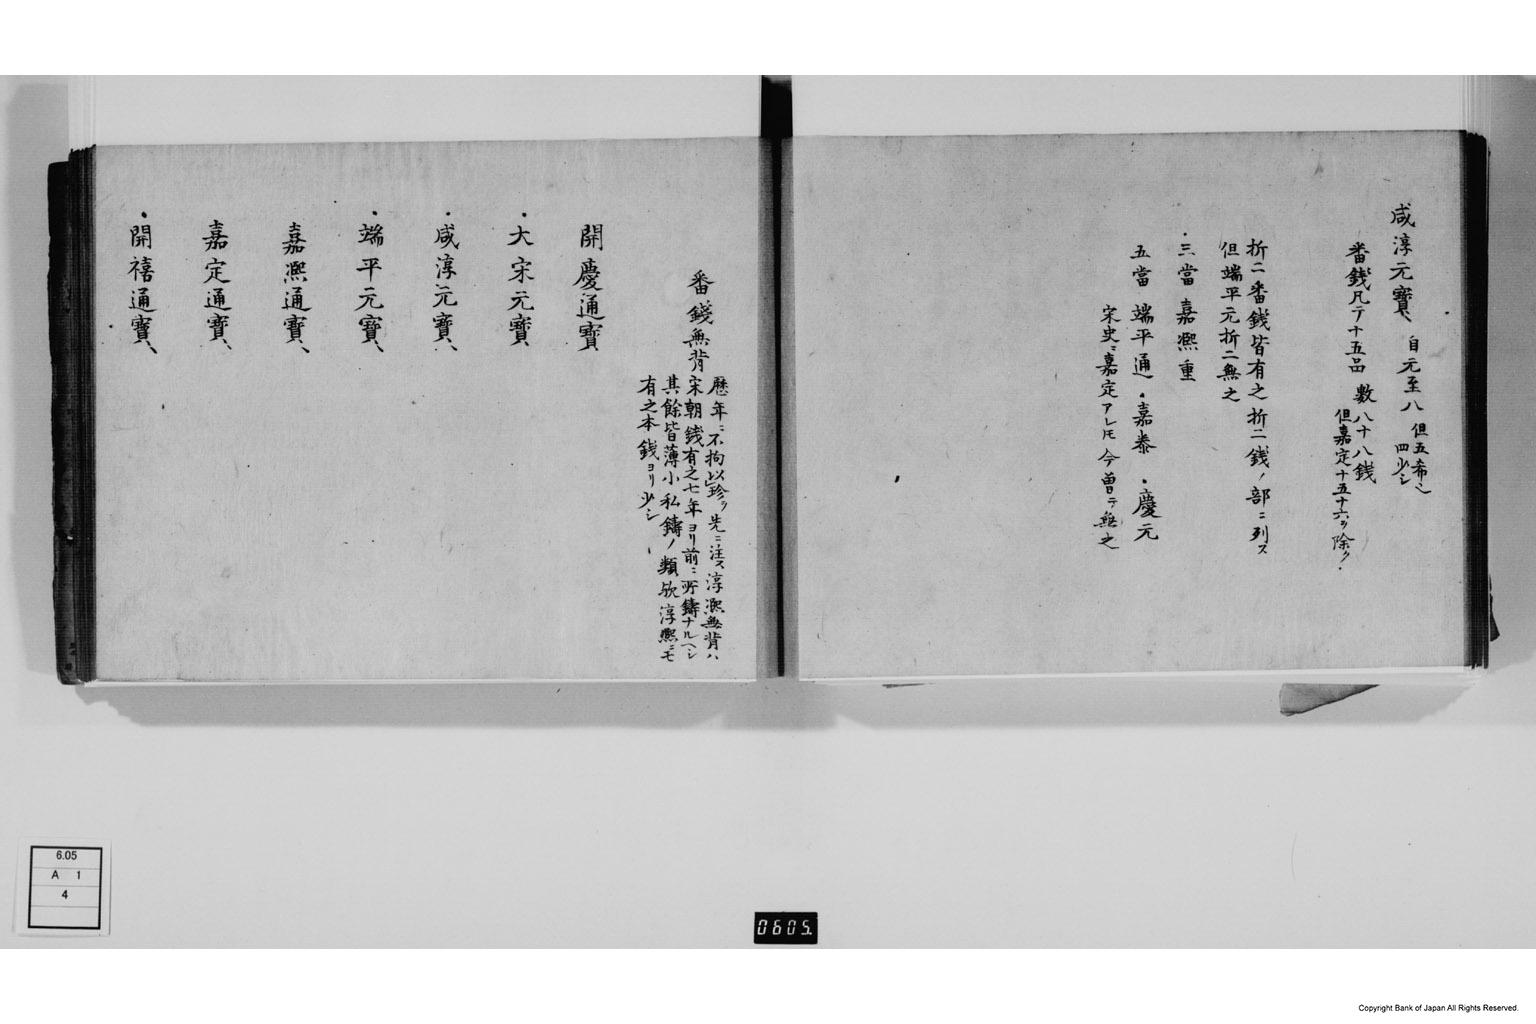 咸淳元寳 自元至八 但五希ニ
四少シ
番銭凡テ十五品 數八十八銭
但嘉定十五十六ヲ除ク
折二番銭皆有之 折二銭ノ部ニ列ス
但端平元折二無之
三當 嘉熙重
五當 端平通 嘉泰 慶元
宋史ニ嘉定アレ𪜈今曽テ無之
番錢無背
歴年ニ不拘以珍ヲ先ニ注ス淳熙無背ハ
宋朝銭有之七年ヨリ前ニ所鑄ナルヘシ
其餘皆薄小私鑄ノ類欤淳熙ニモ
有之本銭ヨリ少シ
開慶通寳
大宋元寳
咸淳元寳
端平元寳
嘉熙通寳
嘉定通寳
開禧通寳
6.05
A 1
4
0605.
Copyright Bank of Japan All Rights Reserved.